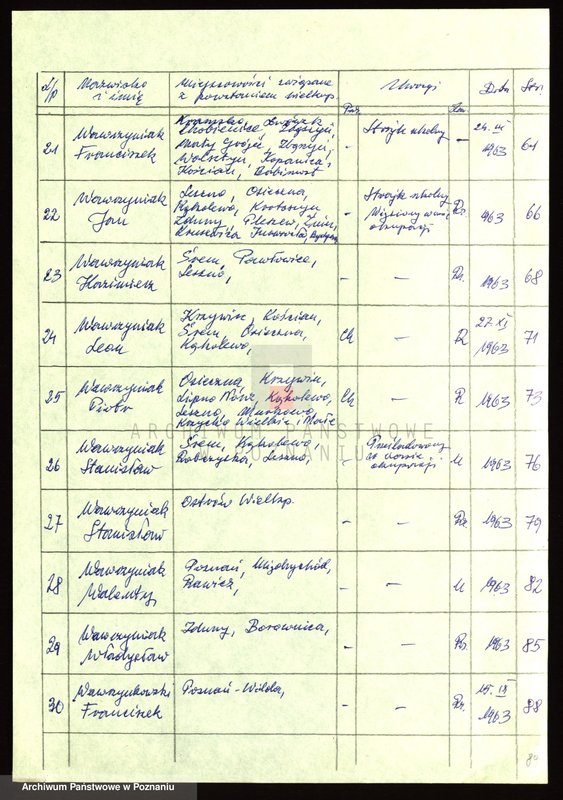 L/p Nazwisko i imię Miejscowości związane z powstaniem wielkop. Uwagi Data Str.
21 Wawrzyniak Franciszek
Chobienice, Zbąszyń,
Wolsztyn, Kopanica,
Kościan, Babimost
- Strajk szkolny - 24. III 1963 64
22 Wawrzyniak Jan
Leszno, Osieczna,
Kąkolewo, Krotoszyn
Zduny Pleszew, Żnin,
Kruszwica Inowrocław, Bydgoszcz
- Strajk szkolny
Więziony w czas. okupacji
R. 963 66
23 Wawrzyniak Kazimierz
Śrem, Pawłowice,
Leszno,
- - Rz. 1963 68
24 Wawrzyniak Leon
Krzywiń, Kościan,
Śrem, Osieczna,
Kąkolewo,
Ch - R 27. XI 1963 71
25 Wawrzyniak Piotr
Osieczna, Krzywiń,
Lipno Nowe, Kąkolewo,
Leszno,
Krzycko Wielkie, Małe
Ch - R 1963 73
26 Wawrzyniak Stanisław
Śrem, Kąkolewo,
Robczysko, Leszno,
- Prześladowany
w czasie
okupacji
U 1963 76
27 Wawrzyniak Stanisław
Ostrów Wielkp.
- - Rz 1963 79
28 Wawrzyniak Walenty
Poznań, Międzychód,
Rawicz,
- - U 1963 82
29 Wawrzyniak Władysław
Zduny, Borownica,
- - Rz. 1963 85
30 Wawrzynkowski Franciszek
Poznań-Wilda,
- - Rz. 1963 88
ARCHIWUM PAŃSTWOWE
W POZNANIU
Archiwum Państwowe w Poznaniu